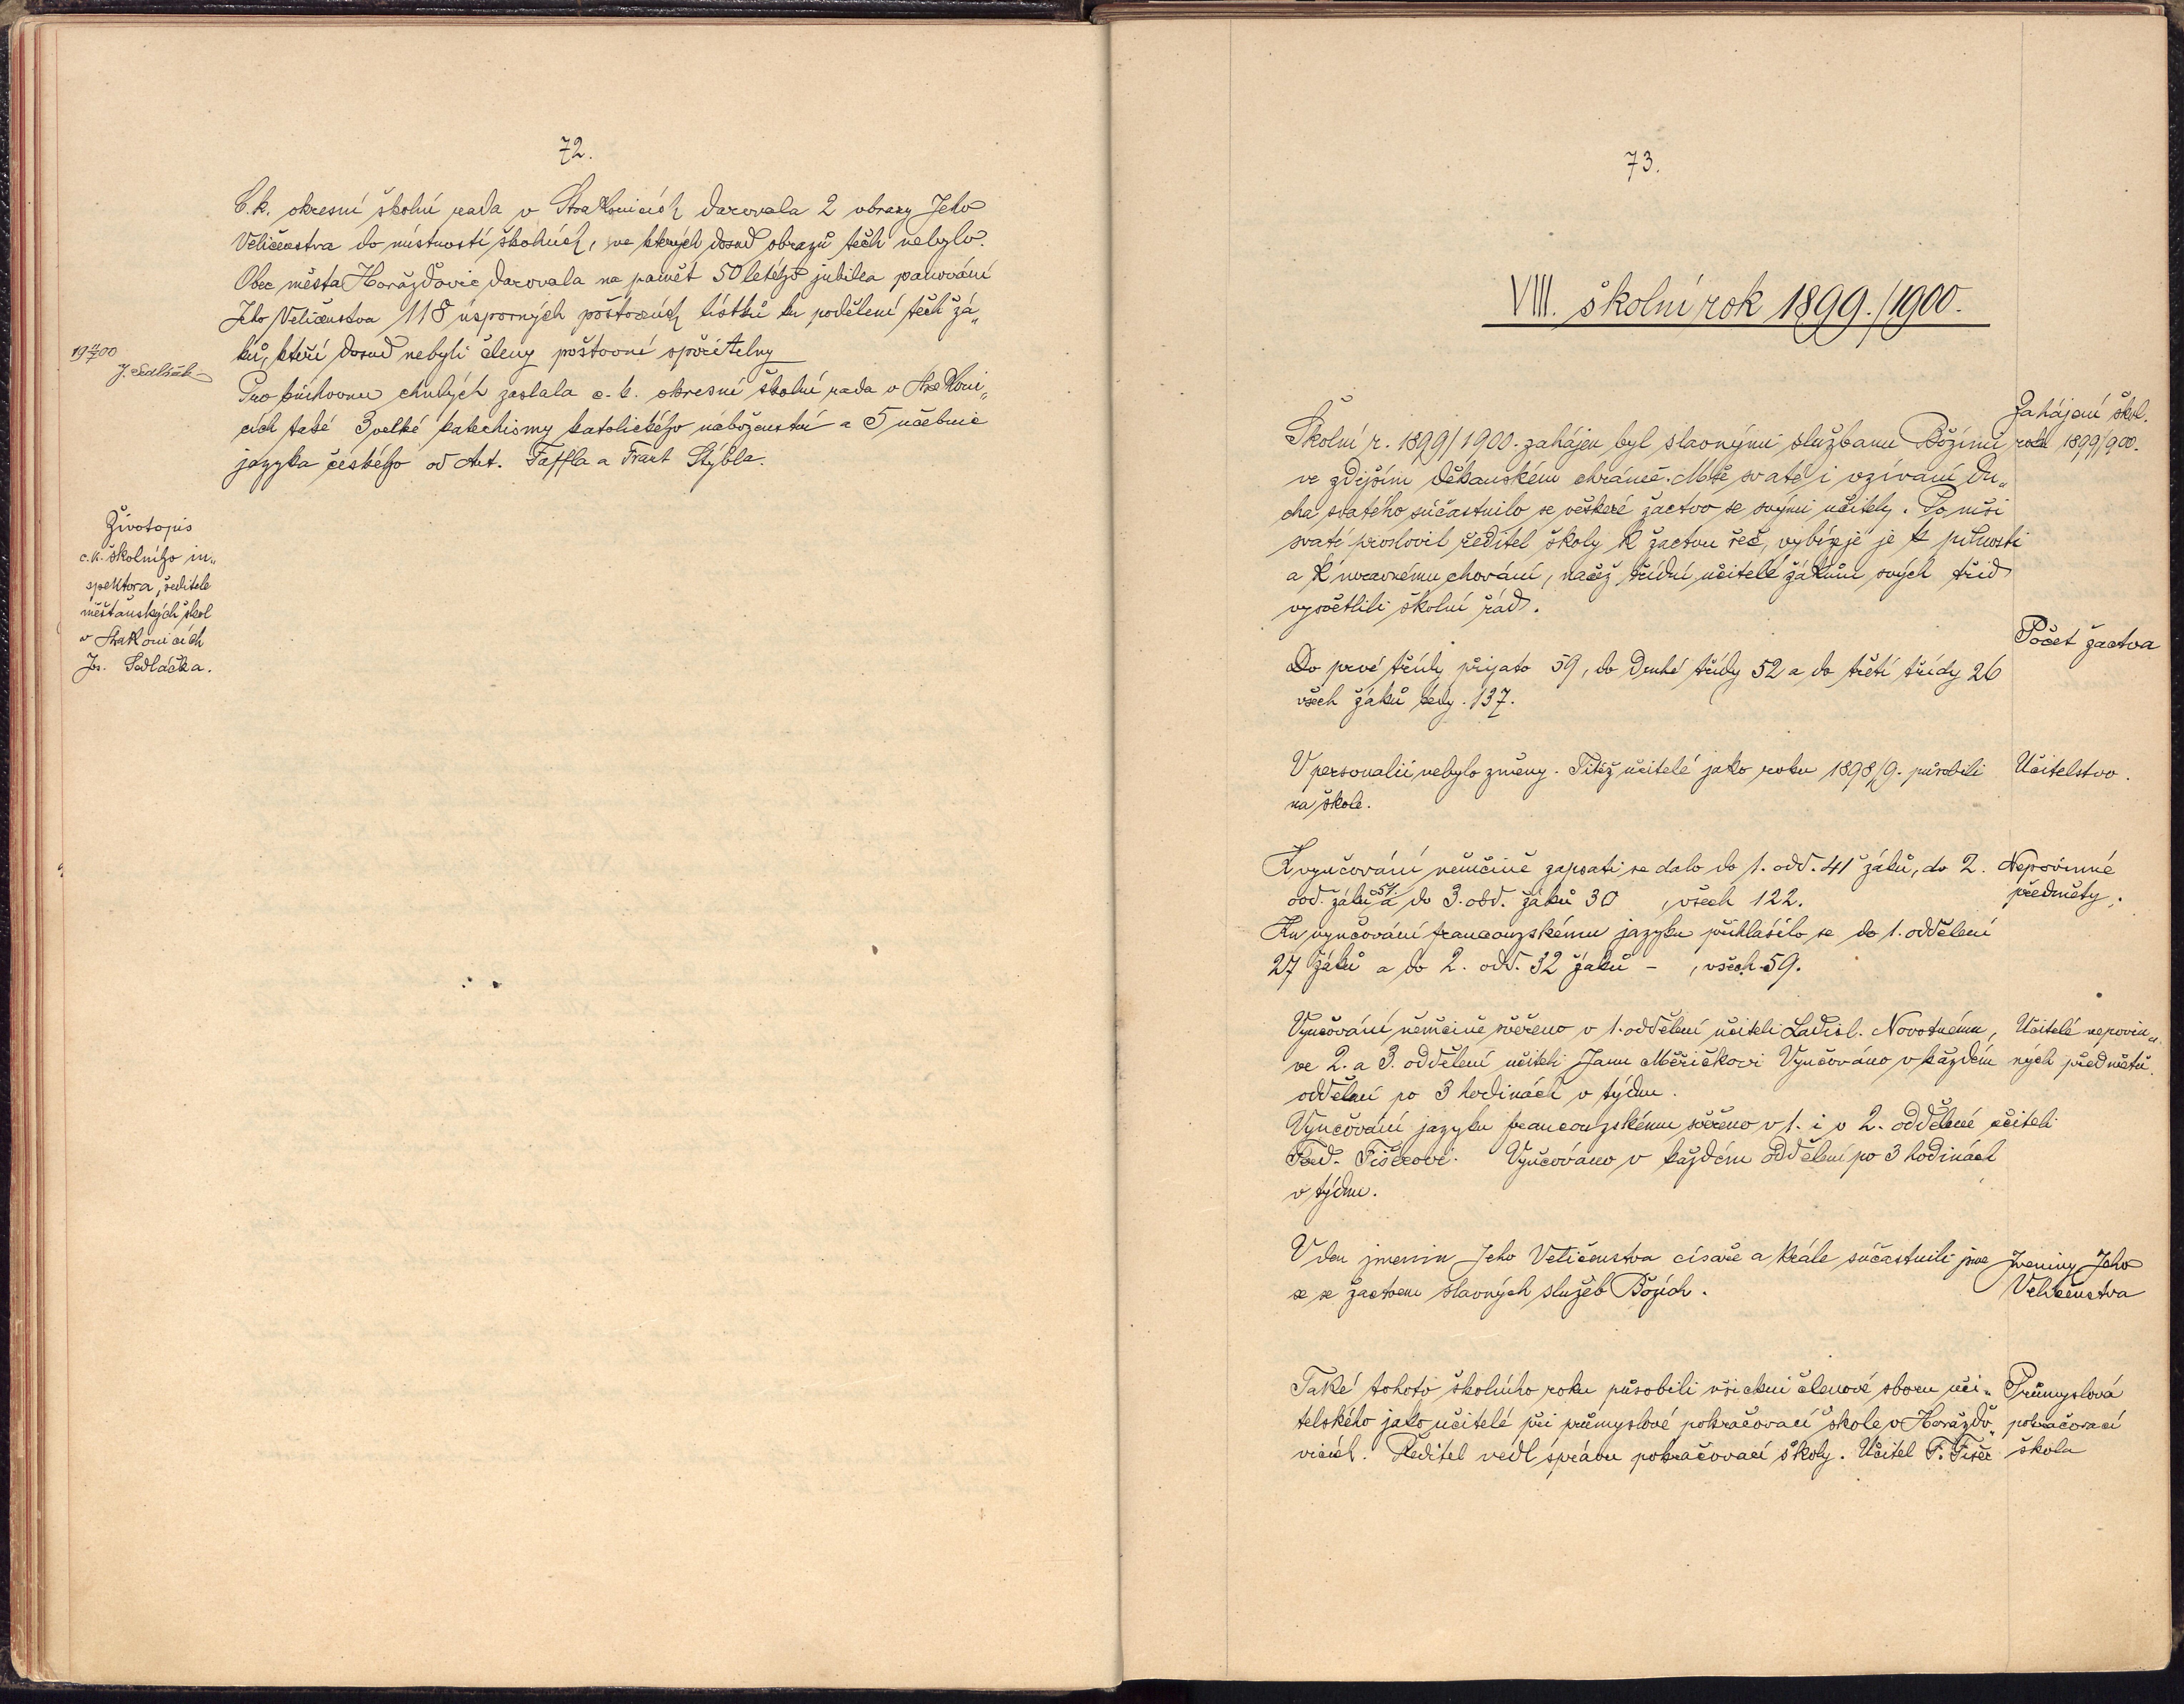 72.
C.k. okresní školní rada v Strakonicích darovala 2 obrazy Jeho
Veličenstva do místností školních, ve kterých dosud obrazů těch nebylo.
Obec města Horažďovic darovala na paměť 50letého jubilea panování
Jeho Veličenstva 118 úsporných poštovních lístků ku podělení těch žá„
ků, kteří dosud nebyli členy poštovní spořitelny
19 00
J. Sedláček
Pro knihovnu chudých zaslala c. k. okresní školní rada v Strakoni„
cích také 3 velké katechismy katolického náboženství a 5 učebnic
jazyka českého od Ant. Taffla a Frant Stýbla.
Životopis
c.k. školního in„
spektora, ředitele
měšťanských škol
v Strakonicích
Jos. Sedláčka.
73.
VIII. školní rok 1899./1900.
Zahájení škol.
roku 1899/900.
Školní r. 1899/1900. zahájen byl slavnými službami Božími
ve zdejším děkanském chrámě. Mše svaté i vzívání Du„
cha svatého súčastnilo se veškeré žactvo se svými učiteli. Po mši
svaté proslovil ředitel školy k žactvu řeč, vybízeje je k pilnosti
a k mravnému chování, načež třídní učitelé žákům svých tříd
vysvětlili školní řád.
Počet žactva
Do prvé třídy přijato 59, do druhé třídy 52 a do třetí třídy 26
všech žáků tedy. 137.
V personalii nebylo změny. Titíž učitelé jako roku 1898/9. působili
na škole.
Učitelstvo.
K vyučování němčině zapsati se dalo do 1. odd. 41 žáků, do 2.
odd. žáků 51. a do 3. odd. žáků 30 , všech 122.
Nepovinné
předměty.
Ku vyučování francouzskému jazyku přihlásilo se do 1. oddělení
27 žáků a do 2. odd. 32 žáků – , všech 59.
Vyučování němčině svěřeno v 1. oddělení učiteli Ladisl. Novotnému,
ve 2. a 3. oddělení učiteli Janu Měřičkovi Vyučováno v každém
oddělení po 3 hodinách v týdnu.
Učitelé nepovin„
ných předmětů.
Vyučování jazyku francouzskému svěřeno v 1. i v 2. oddělení učiteli
Ferd. Fišerovi. Vyučováno v každém oddělení po 3 hodinách
v týdnu.
V den jmenin Jeho Veličenstva císaře a krále súčastnili jsme
se se žactvem slavných služeb Božích.
Jmeniny Jeho
Veličenstva
Také tohoto školního roku působili všickni členové sboru uči„
telského jako učitelé při průmyslové pokračovací škole v Horažďo„
vicích. Ředitel vedl správu pokračovací školy. Učitel F. Fišer
Průmyslová
pokračovací
škola